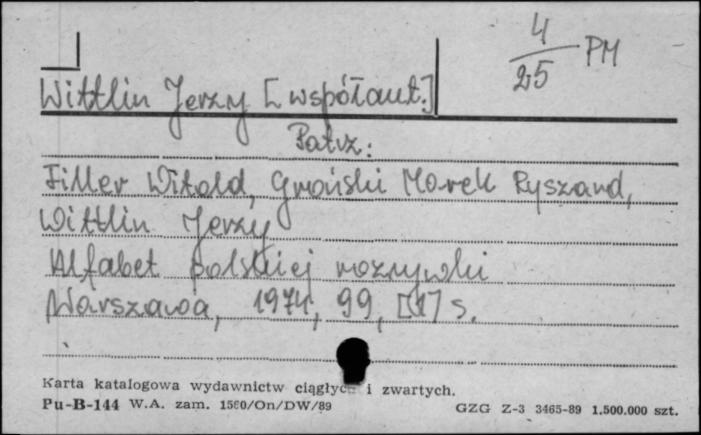 4
25 PM
Wittlin Jerzy [współaut.]
Patrz:
Filler Witold, Groński Marek Ryszard,
Wittlin Jerzy
Alfabet polskiej rozrywki
Warszawa, 1974, 99, [1] s.
Karta katalogowa wydawnictw ciągłych i zwartych.
Pu-B-144 W.A. zam. 1580/On/DW/89 GZG Z-3 3465-89 1.500.000 szt.